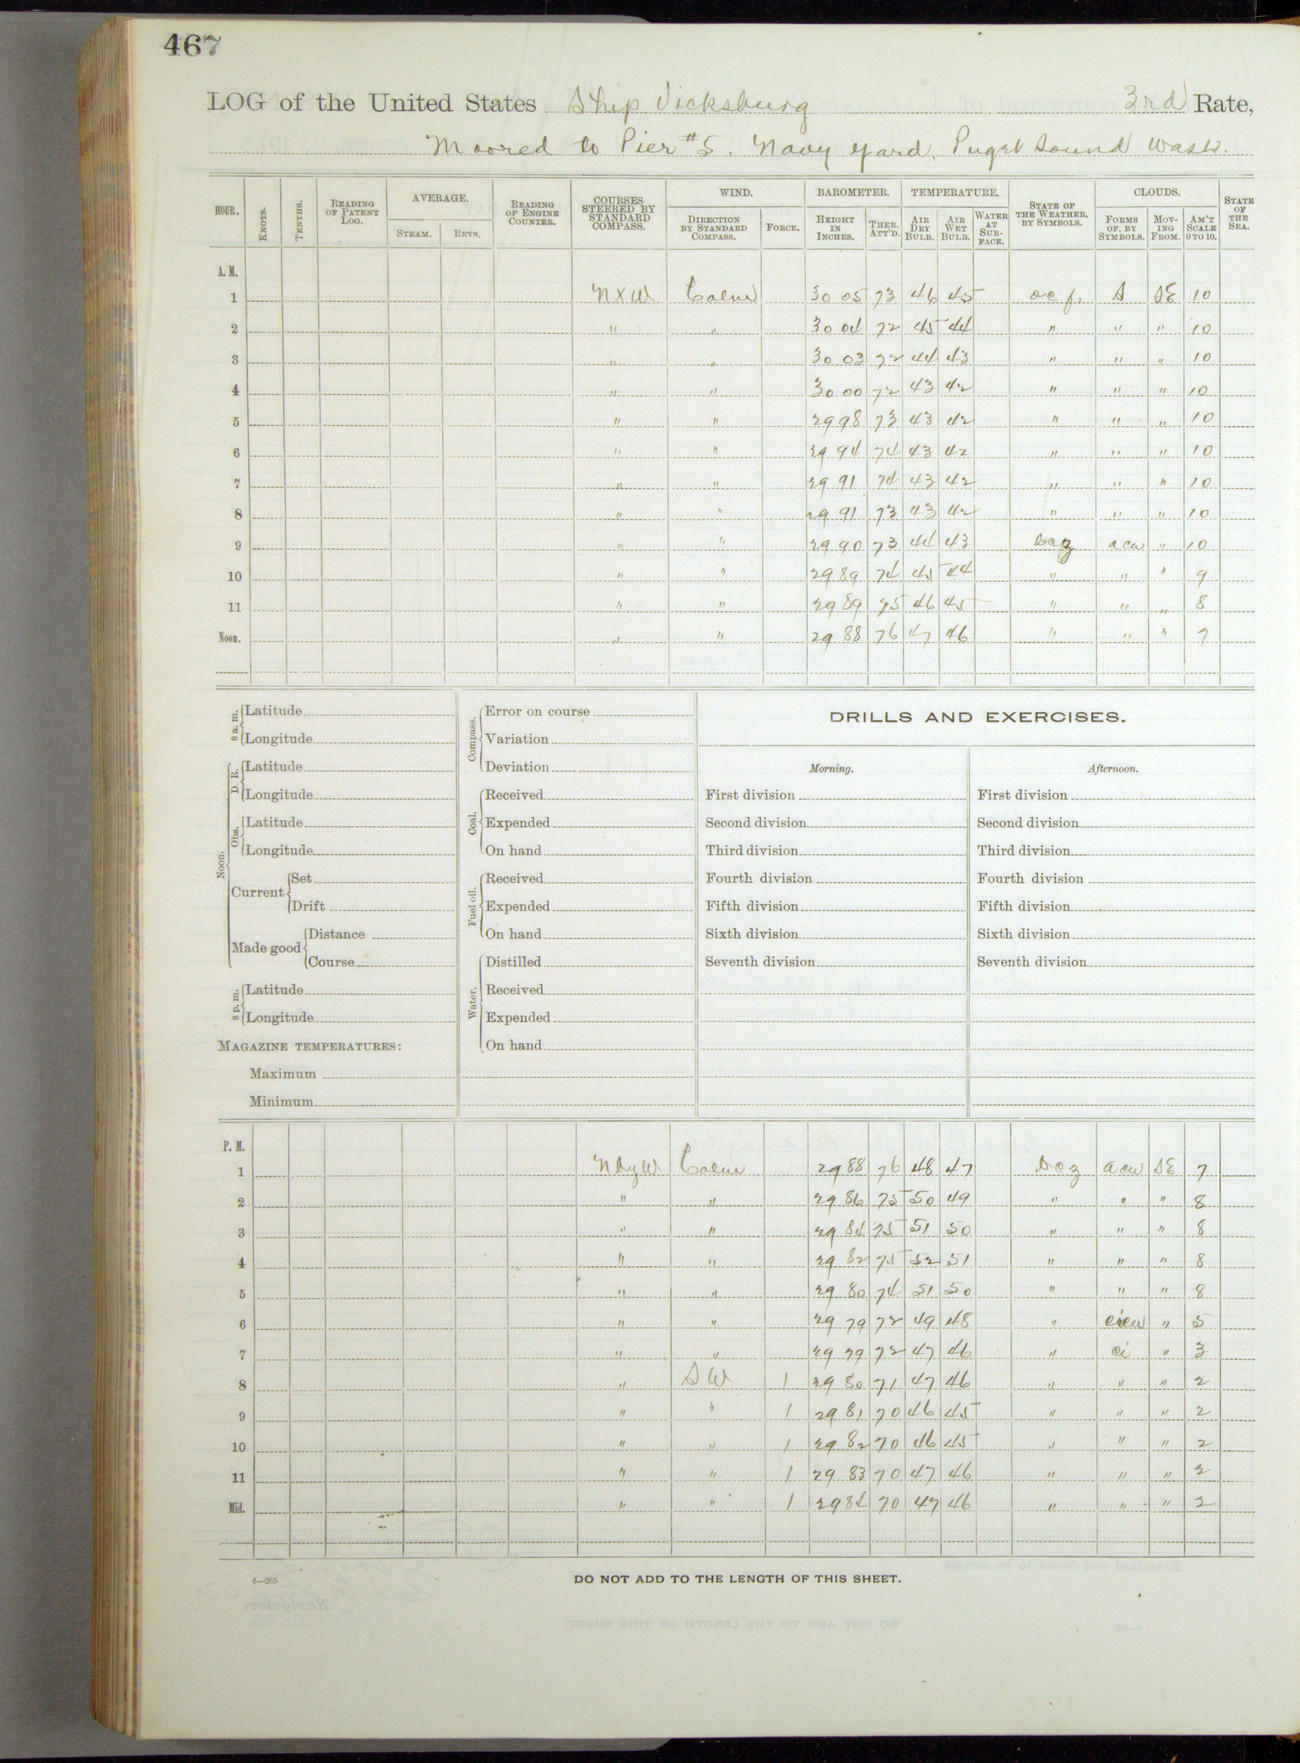 467
LOG of the United States Ship Vicksburg 3rd Rate,
Moored to Pier #5. Navy Yard, Puget Sound Wash.
HOUR. KNOTS. TENTHS. READING OF PATENT LOG. AVERAGE. STEAM. REVS. READING OF ENGINE COUNTER. COURSES STEERED BY STANDARD COMPASS. WIND. DIRECTION BY STANDARD COMPASS. FORCE. BAROMETER. HEIGHT IN INCHES. THER. ATT'D. TEMPERATURE. AIR DRY BULB. AIR WET BULB. WATER AT SURFACE. STATE OF THE WEATHER, BY SYMBOLS. CLOUDS. FORMS OF, BY SYMBOLS. MOVING FROM. AM'T SCALE 0 TO 10. STATE OF THE SEA.
A. M.
1 NXW Calm 30 05 73 46 45 ocf. S SE 10
2 " " 30 04 72 45 44 " " " 10
3 " " 30 03 72 44 43 " " " 10
4 " " 30 00 72 43 42 " " " 10
5 " " 29 98 73 43 42 " " " 10
6 " " 29 94 74 43 42 " " " 10
7 " " 29 91 74 43 42 " " " 10
8 " " 29 91 73 43 42 " " " 10
9 " " 29 90 73 44 43 bcz acu " 10
10 " " 29 89 74 45 44 " " " 9
11 " " 29 89 75 46 45 " " " 8
Noon. " " 29 88 76 47 46 " " " 7
8 a. m. Latitude
Longitude
Noon. D. R. Latitude
Longitude
Obs. Latitude
Longitude
Current Set
Drift
Made good Distance
Course
8 p. m. Latitude
Longitude
MAGAZINE TEMPERATURES:
Maximum
Minimum
Compass. Error on course
Variation
Deviation
Coal. Received
Expended
On hand
Fuel oil. Received
Expended
On hand
Water. Distilled
Received
Expended
On hand
DRILLS AND EXERCISES.
Morning. Afternoon.
First division First division
Second division Second division
Third division Third division
Fourth division Fourth division
Fifth division Fifth division
Sixth division Sixth division
Seventh division Seventh division
P. M.
1 NbyW Calm 29 88 76 48 47 bcz acu SE 7
2 " " 29 86 75 50 49 " " " 8
3 " " 29 84 75 51 50 " " " 8
4 " " 29 82 75 52 51 " " " 8
5 " " 29 80 74 51 50 " " " 8
6 " " 29 79 72 49 48 " cicu " 5
7 " " 29 79 72 47 46 " ci " 3
8 " SW 1 29 80 71 47 46 " " " 2
9 " " 1 29 81 70 46 45 " " " 2
10 " " 1 29 82 70 46 45 " " " 2
11 " " 1 29 83 70 47 46 " " " 2
Mid. " " 1 29 84 70 47 46 " " " 2
DO NOT ADD TO THE LENGTH OF THIS SHEET.